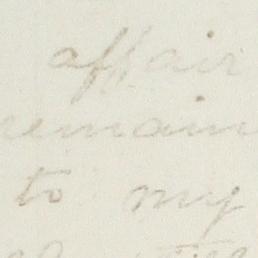 affair
remain
to my